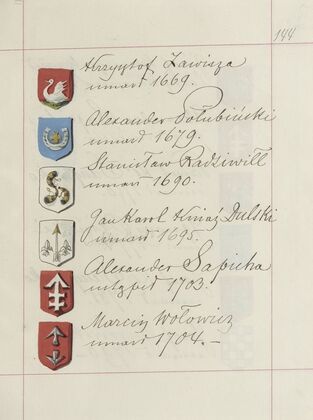 144
Krzysztof Zawisza
umarł 1669.
Alexander Połubiński
umarł 1679.
Stanisław Radziwiłł
umarł 1690.
Jan Karol Kniaź Dolski
umarł 1695.
Alexander Sapieha
ustąpił 1703.
Marcin Wołowicz
umarł 1704. –